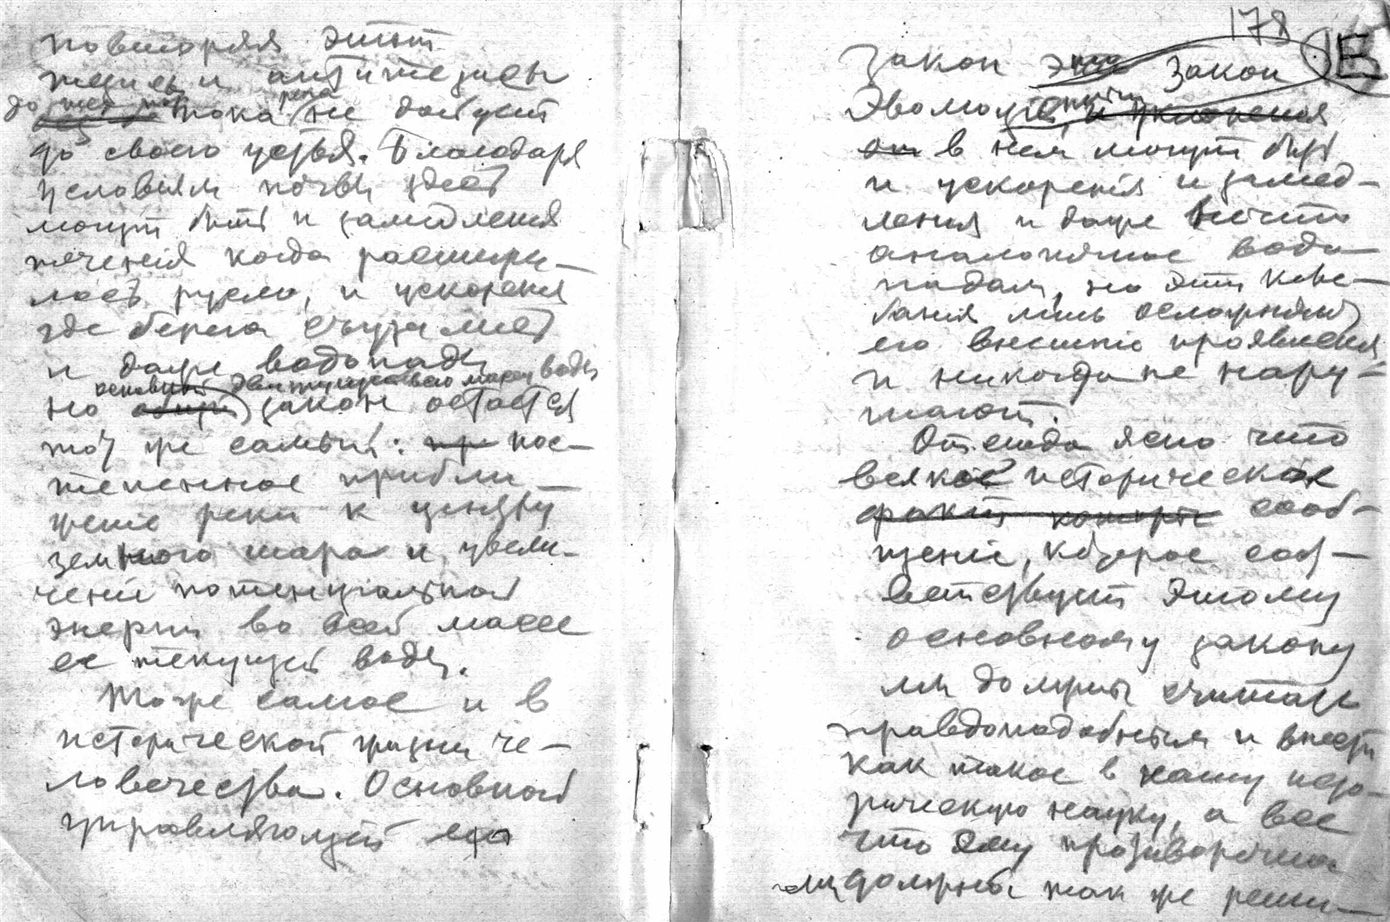 повторяя этот
тезисы и антитезисы
до тех пор пока река не дойдет
до своего устья. Благодаря
условиям почвы здесь
могут быть и замедления
теченія когда расшири-
лось русло, и ускоренія
где берега съузились
и даже водопады
основной движущуюся массу воды
но общій закон остается
той же самый: пос-
тепенное прибли-
женіе реки к центру
земного шара и увели-
ченіе потенціальной
энергіи во всей массе
ее текущей воды.
Тоже самое и в
исторической жизни че-
ловечества. Основной
управляющій ею
178
закон это закон
Эволюціи, и уклоненія
от в нем могут быть
и ускоренія и замед-
ленія и даже нечто
аналогичное водо-
падам, но эти коле-
банія лишь осложняют
его внешніе проявленія
и никогда не нару-
шают.
Отсюда ясно что
всякое историческое
факты которые сооб-
щеніе, которое соот-
ветствует этому
основному закону
мы должны считать
правдоподобным и внести
как такое в нашу исто-
рическую науку, а все
что ему противоречит
мы должны так же реши-